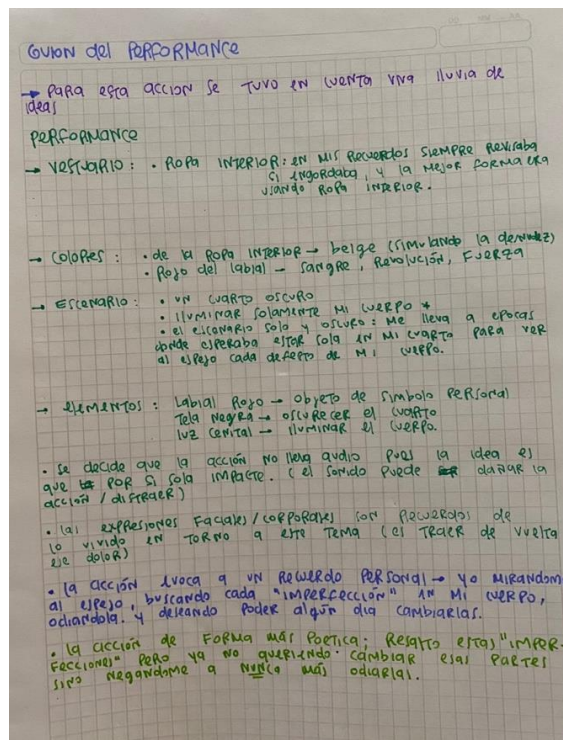 GUION del PERFORMANCE
→ PARA ESTA ACCION SE TUVO EN CUENTA UNA lluvia de
ideas
PERFORMANCE
→ VESTUARIO : • ROPA INTERIOR : EN MIS RECUERDOS SIEMPRE REVISABA
SI ENGORDABA, Y LA MEJOR FORMA ERA
USANDO ROPA INTERIOR.
→ COLORES : • de la ROPA INTERIOR → beige (simulando la desnudez)
• ROJO del labial → SANGRE, REVOLUCIÓN, FUERZA
→ ESCENARIO : • UN CUARTO OSCURO
• ILUMINAR SOLAMENTE MI CUERPO *
• el escenario solo y oscuro : ME lleva a epocas
donde ESPERABA ESTAR SOLA EN MI CUARTO PARA VER
al espejo cada defecto de MI CUERPO.
→ elementos : Labial Rojo → objeto de simbolo PERSONAL
Tela Negra → oscurecer el cuarto
luz cenital → iluminar el cuerpo.
• se decide que la acción no lleva audio pues la idea es
que POR SI SOLA IMPACTE. (el sonido puede dañar la
acción / distraer)
• las expresiones Faciales / corporales son Recuerdos de
lo vivido en TORNO a este Tema (es TRAER de vuelta
ese dolor)
• la acción evoca a un Recuerdo PERSONAL → yo MIRANDOM
al espejo, buscando cada "IMPERFECCIÓN" en MI CUERPO,
odiandola. y deseando poder algún dia cambiarlas.
• la acción de FORMA MÁS POETICA ; Resalto estas "IMPER-
FECCIONES" PERO ya NO queriendo cambiar esas PARTES
sino negandome a NUNCA más odiarlas.